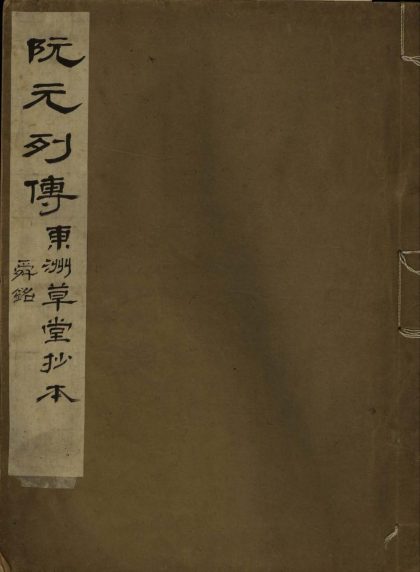 阮元列傳東洲草堂抄本
舜銘